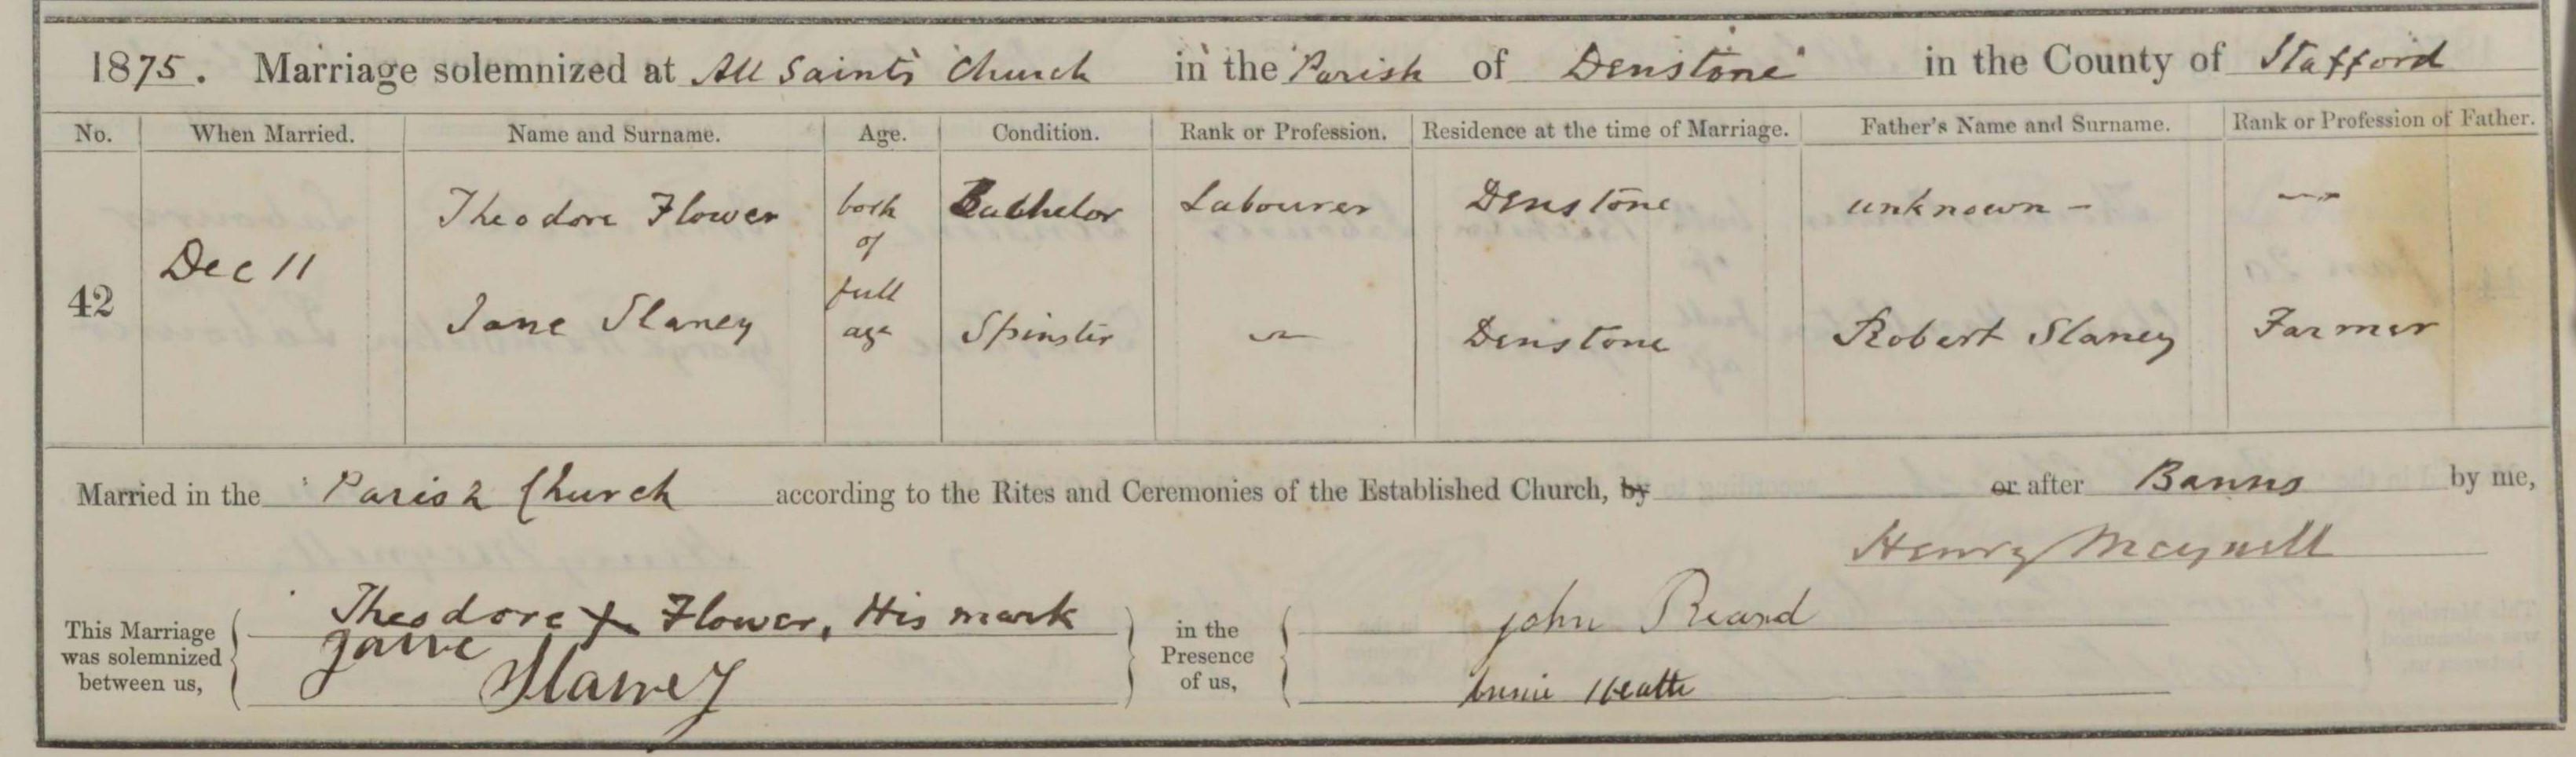 1875. Marriage solemnized at All Saints Church in the Parish of Denstone in the County of Stafford
No. When Married. Name and Surname. Age. Condition. Rank or Profession. Residence at the time of Marriage. Father's Name and Surname. Rank or Profession of Father.
42 Dec 11
Theodore Flower both of full age Bachelor Labourer Denstone unknown - —
Jane Slaney Spinster — Denstone Robert Slaney Farmer
Married in the Parish Church according to the Rites and Ceremonies of the Established Church, by or after Banns by me,
Henry Meynell
This Marriage was solemnized between us,
Theodore X Flower, His mark
Jane Slaney
in the Presence of us,
John
Annie Heath